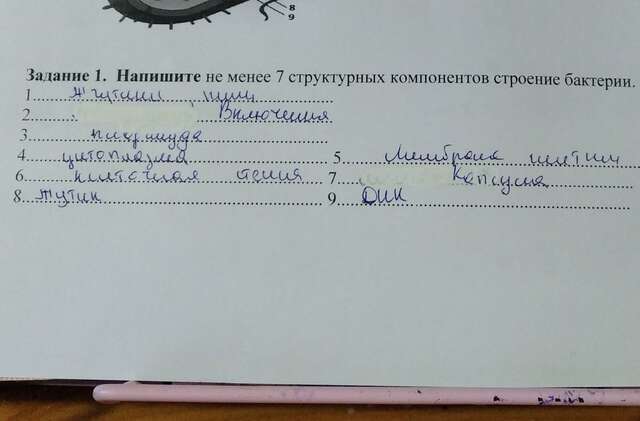 8
9
Задание 1. Напишите не менее 7 структурных компонентов строение бактерии.
1. жгутики, пили
2. Включения
3. плазмида
4. цитоплазма 5. Мембрана
6. клеточная стенка 7. Капсула
8. жгутик 9. ДНК